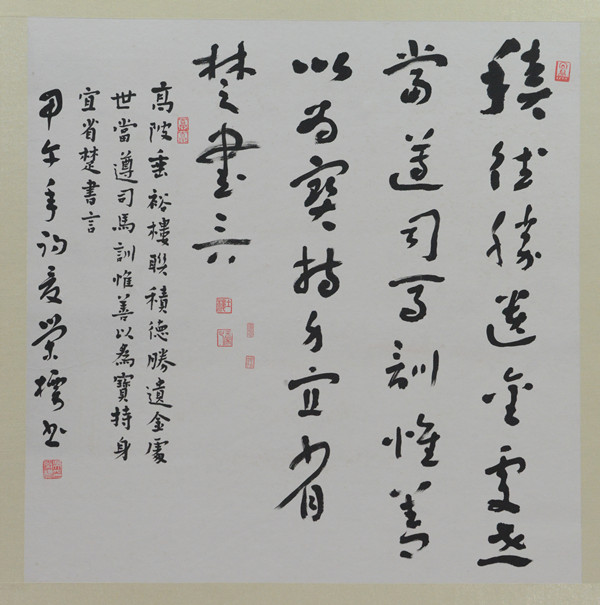 積德勝遺金處世
當遵司馬訓惟善
以為寶持身宜省
楚書言
高陂垂裕樓聯積德勝遺金處
世當遵司馬訓惟善以為寶持身
宜省楚書言
甲午年初夏榮